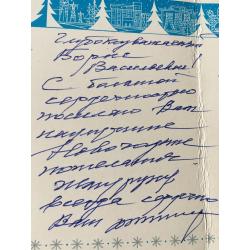 Глубокоуважаемый
Борис
Васильевич!
С большой
сердечностью
Вам
наилучшие
Новогодние
пожелания.
Жму руку
всегда сердечно
Ваш